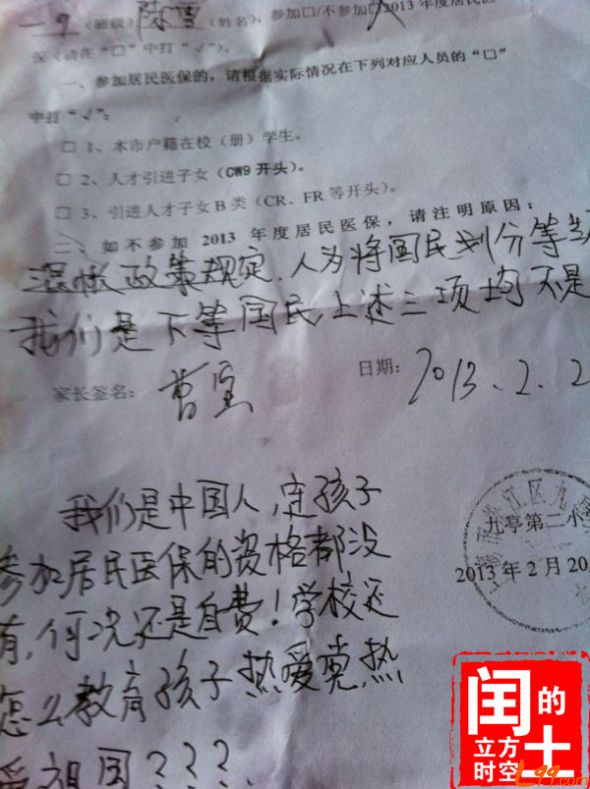 (班级) 陈雪 (姓名), 参加□/不参加□2013 年度居民医
保(请在“□”中打“√”)。
一、参加居民医保的，请根据实际情况在下列对应人员的“□”
中打“√”：
□ 1、本市户籍在校（册）学生。
□ 2、人才引进子女（CW9 开头）。
□ 3、引进人才子女 B 类（CR、FR 等开头）。
二、如不参加 2013 年度居民医保，请注明原因：
混帐政策规定，人为将国民划分等
我们是下等国民，上述三项均不是
家长签名：曹宝 日期：2013.2.2
我们是中国人，连孩子
参加居民医保的资格都没
有，何况还是自费！学校还
怎么教育孩子热爱党，热
爱祖国？？？
九亭第二小
2013 年 2 月 20
闰的土
立方时空
L99.com